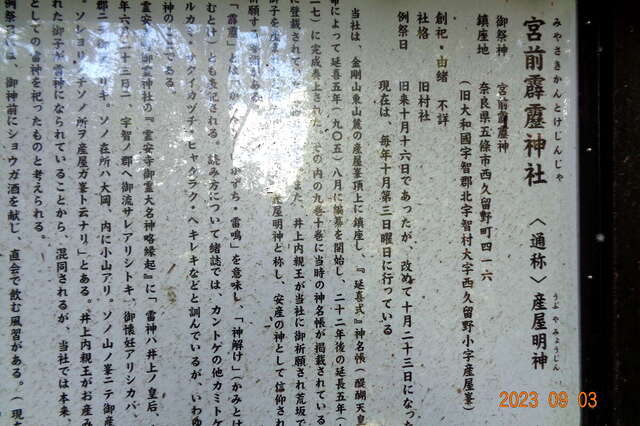 みやさきかんとけじんじゃ
宮前霹靂神社
〈通称〉産屋明神
うぶやみょうじん
御祭神 宮前霹靂神
鎮座地 奈良県五條市西久留野町四一六
(旧大和國宇智郡北宇智村大字西久留野小字産屋峯)
創祀・由緒 不詳
社格 旧村社
例祭日 旧来十月十六日であったが、改めて十月二十三日になった
現在は、毎年十月第三日曜日に行っている
当社は、金剛山東山麓の産屋峯頂上に鎮座し、『延喜式』神名帳(醍醐天皇
によって延喜五年(九〇五)八月に編纂を開始し、二十二年後の延長五年(
二七)に完成奏上された。その内の九巻十巻に当時の神名帳が掲載されている
に登載されてい
また、井上内親王が当社に御祈願され荒坂で
産屋明神と称し、安産の神として信仰され
祈願する
「霹靂」とは、
かずち・雷鳴」を意味し、「神解け」(かみとけ
むとけ)とも表記される。読み方について諸誌では、カントケの他カミトケ
ルカミ・サクイカヅチ・ヒャクラク・ヘキレキなどと訓んでいるが、いわゆ
神のことである。
霊安寺御霊神社の『霊安寺御霊大名神略縁起』に「雷神ハ井上ノ皇后、
年六月二十三日ニ、宇智ノ郡ヘ御流サレアリシトキ、御懐妊アリシカバ、
郡ニ御
アリキ。ソノ在所ハ大岡、内ニ小山アリ、ソノ山ノ峯ニテ御産
ソノ所ヲ産屋ガ峯ト云ナリ」とある。井上内親王がお産み
れた御子が雷神になられていることから、混同されるが、当社では本来、
としての雷神を祀ったものと考えられる。
例祭には、御神前にショウガ酒を献じ、直会で飲む風習がある。(現
2023 09 03